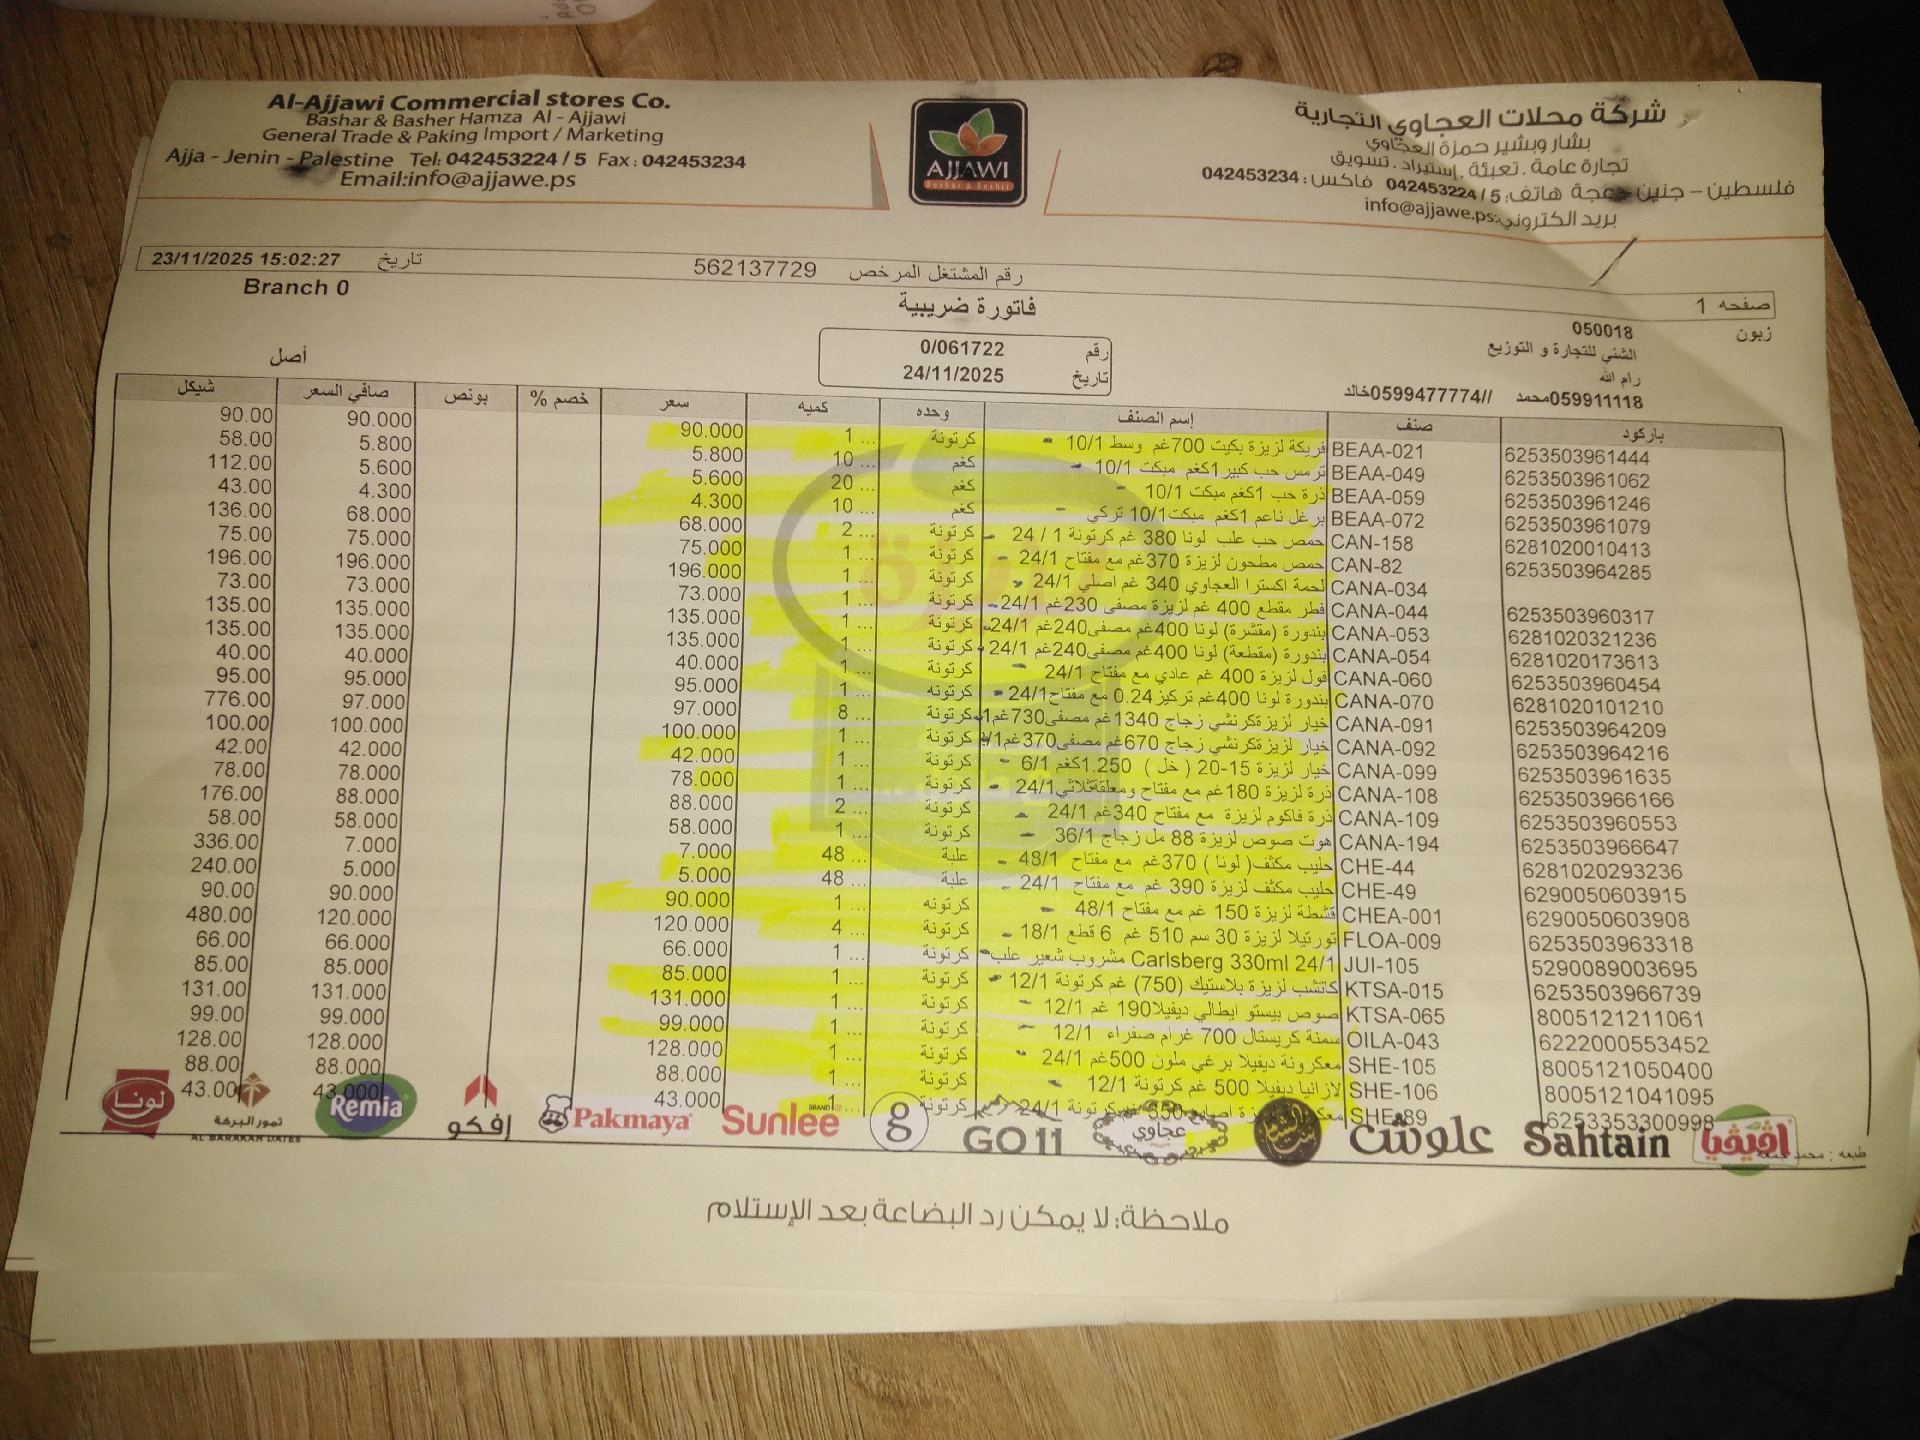 Al-Ajjawi Commercial stores Co.
Bashar & Basher Hamza Al - Ajjawi
General Trade & Paking Import / Marketing
Ajja - Jenin - Palestine Tel: 042453224 / 5 Fax: 042453234
Email:info@ajjawe.ps
AJJAWI
Bashar & Bashir
شركة محلات العجاوي التجارية
بشار وبشير حمزة العجاوي
تجارة عامة . تعبئة . إستيراد . تسويق
فلسطين – جنين – عجة هاتف: 5 / 042453224 فاكس: 042453234
بريد الكتروني: info@ajjawe.ps
23/11/2025 15:02:27 تاريخ
562137729 رقم المشتغل المرخص
صفحه 1
Branch 0
فاتورة ضريبية
زبون 050018
الشني للتجارة و التوزيع
رام الله
059911118محمد //0599477774خالد
رقم 0/061722
تاريخ 24/11/2025
أصل
باركود صنف إسم الصنف وحده كميه سعر خصم % بونص صافي السعر شيكل
6253503961444 BEAA-021 فريكة لزيزة بكيت 700غم وسط 10/1 كرتونة 1 ... 90.000 90.000 90.00
6253503961062 BEAA-049 ترمس حب كبير 1كغم مبكت 10/1 كغم 10 ... 5.800 5.800 58.00
6253503961246 BEAA-059 ذرة حب 1كغم مبكت 10/1 كغم 20 ... 5.600 5.600 112.00
6253503961079 BEAA-072 برغل ناعم 1كغم مبكت10/1 تركي كغم 10 ... 4.300 4.300 43.00
6281020010413 CAN-158 حمص حب علب لونا 380 غم كرتونة 1 / 24 كرتونة 2 ... 68.000 68.000 136.00
6253503964285 CAN-82 حمص مطحون لزيزة 370غم مع مفتاح 24/1 كرتونة 1 ... 75.000 75.000 75.00
CANA-034 لحمة اكسترا العجاوي 340 غم اصلي 24/1 كرتونة 1 ... 196.000 196.000 196.00
6253503960317 CANA-044 فطر مقطع 400 غم لزيزة مصفى 230غم 24/1 كرتونة 1 ... 73.000 73.000 73.00
6281020321236 CANA-053 بندورة (مقشرة) لونا 400غم مصفى240غم 24/1 كرتونة 1 ... 135.000 135.000 135.00
6281020173613 CANA-054 بندورة (مقطعة) لونا 400غم مصفى240غم 24/1 كرتونة 1 ... 135.000 135.000 135.00
6253503960454 CANA-060 فول لزيزة 400 غم عادي مع مفتاح 24/1 كرتونة 1 ... 40.000 40.000 40.00
6281020101210 CANA-070 بندورة لونا 400غم تركيز0.24 مع مفتاح24/1 كرتونه 1 ... 95.000 95.000 95.00
6253503964209 CANA-091 خيار لزيزةكرنشي زجاج 1340غم مصفى730غم1 كرتونة 8 ... 97.000 97.000 776.00
6253503964216 CANA-092 خيار لزيزةكرنشي زجاج 670غم مصفى370غم كرتونة 1 ... 100.000 100.000 100.00
6253503961635 CANA-099 خيار لزيزة 15-20 ( خل ) 1.250كغم 6/1 كرتونة 1 ... 42.000 42.000 42.00
6253503966166 CANA-108 ذرة لزيزة 180غم مع مفتاح ومعلقةثلاثي24/1 كرتونة 1 ... 78.000 78.000 78.00
6253503960553 CANA-109 ذرة فاكوم لزيزة مع مفتاح 340غم 24/1 كرتونة 2 ... 88.000 88.000 176.00
6253503966647 CANA-194 هوت صوص لزيزة 88 مل زجاج 36/1 كرتونة 1 ... 58.000 58.000 58.00
6281020293236 CHE-44 حليب مكثف( لونا ) 370غم مع مفتاح 48/1 علبة 48 ... 7.000 7.000 336.00
6290050603915 CHE-49 حليب مكثف لزيزة 390 غم مع مفتاح 24/1 علبة 48 ... 5.000 5.000 240.00
6290050603908 CHEA-001 قشطة لزيزة 150 غم مع مفتاح 48/1 كرتونه 1 ... 90.000 90.000 90.00
6253503963318 FLOA-009 تورتيلا لزيزة 30 سم 510 غم 6 قطع 18/1 كرتونة 4 ... 120.000 120.000 480.00
5290089003695 JUI-105 Carlsberg 330ml 24/1 مشروب شعير علب كرتونة 1 ... 66.000 66.000 66.00
6253503966739 KTSA-015 كاتشب لزيزة بلاستيك (750) غم كرتونة 12/1 كرتونة 1 ... 85.000 85.000 85.00
8005121211061 KTSA-065 صوص بيستو ايطالي ديفيلا190 غم 12/1 كرتونة 1 ... 131.000 131.000 131.00
6222000553452 OILA-043 سمنة كريستال 700 غرام صفراء 12/1 كرتونة 1 ... 99.000 99.000 99.00
8005121050400 SHE-105 معكرونة ديفيلا برغي ملون 500غم 24/1 كرتونة 1 ... 128.000 128.000 128.00
8005121041095 SHE-106 لازانيا ديفيلا 500 غم كرتونة 12/1 كرتونة 1 ... 88.000 88.000 88.00
6253353300998 SHE-89 اصابع 350 كرتونة 24/1 كرتونة 1 ... 43.000 43.000 43.00
لونا
تمور البركة
AL BARAKAH DATES
Remia
إفكو
Pakmaya
Sunlee
g
GO11
عجاوي
علوش
Sahtain
طبعه : محمد
ملاحظة: لا يمكن رد البضاعة بعد الإستلام